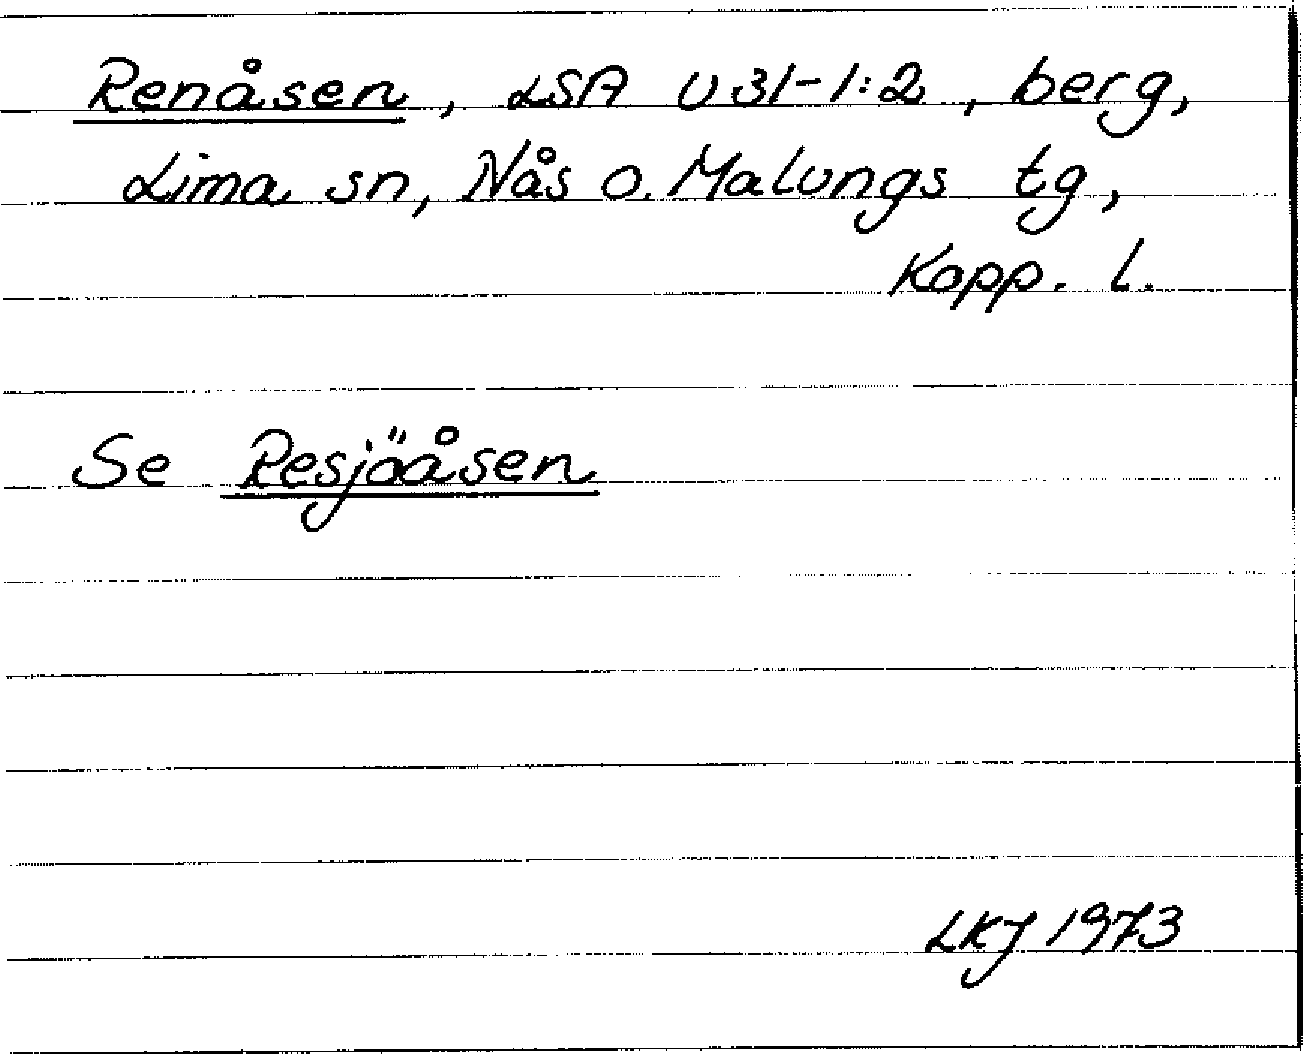 Renåsen, LSA U31-1:2, berg,
Lima sn, Nås o. Malungs tg,
Kopp. l.
Se Resjöåsen
LKJ 1973